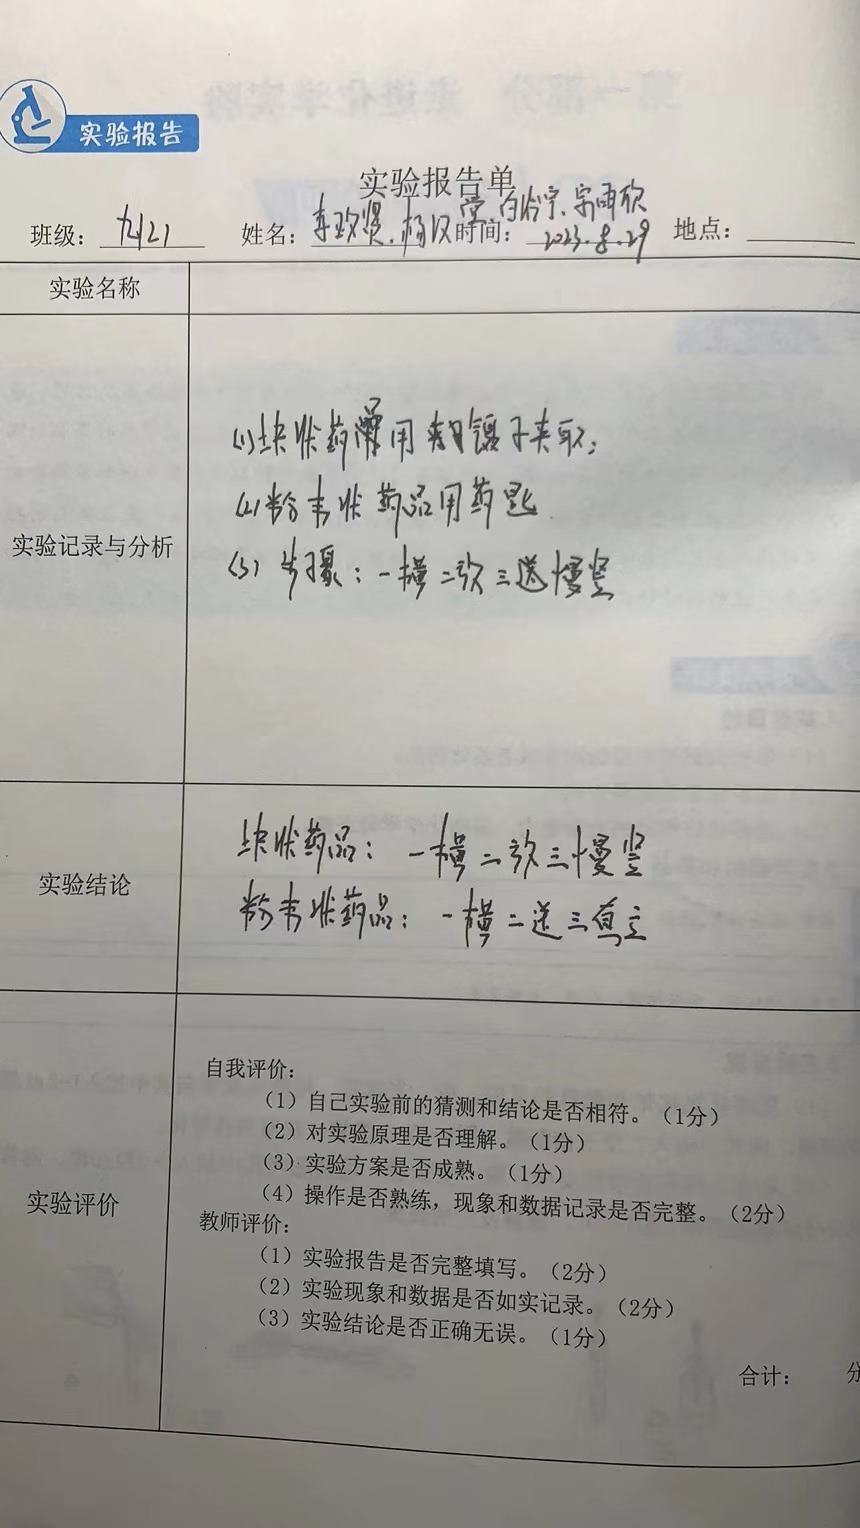 实验报告
实验报告单
班级：九(2) 姓名：李政贤、杨汉堂、白岭宗、宗雨欣 时间：2023.8.29 地点：
实验名称
实验记录与分析
(1)块状药品用镊子夹取；
(2)粉末状药品用药匙
(3)步骤：一横二放三送慢竖
实验结论
块状药品：一横二放三慢竖
粉末状药品：一横二送三直立
实验评价
自我评价：
（1）自己实验前的猜测和结论是否相符。（1分）
（2）对实验原理是否理解。（1分）
（3）实验方案是否成熟。（1分）
（4）操作是否熟练，现象和数据记录是否完整。（2分）
教师评价：
（1）实验报告是否完整填写。（2分）
（2）实验现象和数据是否如实记录。（2分）
（3）实验结论是否正确无误。（1分）
合计： 分